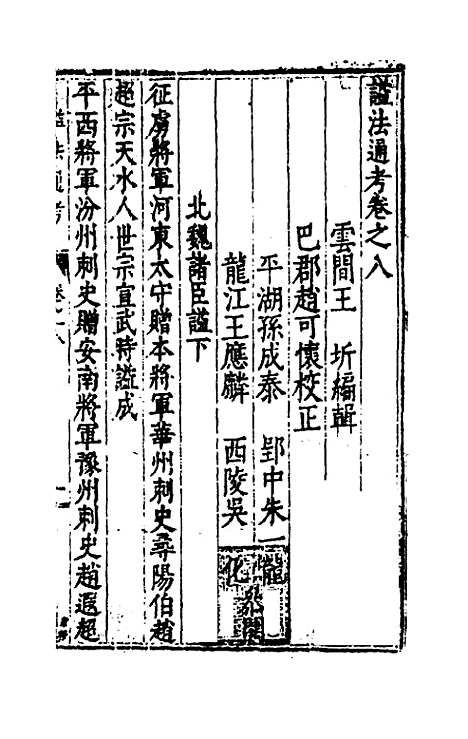 謚法通考卷之八
雲間王　圻編輯
巴郡趙可懷校正
平湖孫成泰　郢中朱一
龍江王應麟　西陵吳化
北魏諸臣謚下
征虜將軍河東太守贈本將軍華州刺史尋陽伯趙
超宗天水人世宗宣武時謚成
平西將軍汾州刺史贈安南將軍豫州刺史趙遐超
謚法通考　卷之八